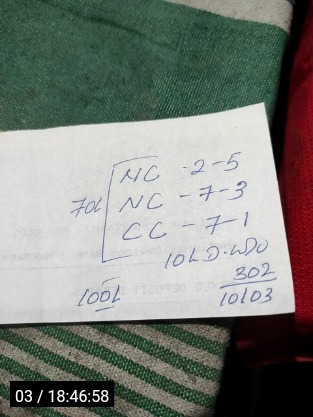 MC - 2-5
70L NC - 7-3
CC - 7-1
10L D.WDO
302
100L 10103
03 / 18:46:58